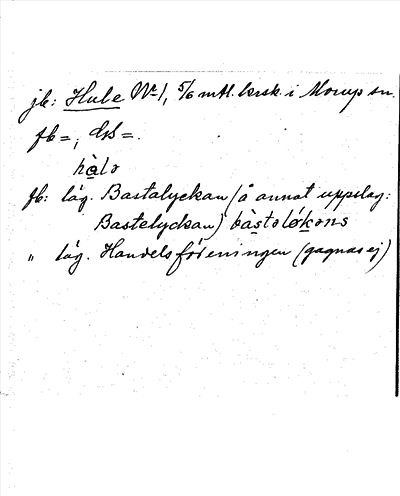 jb: Hule Nr 1, 5/6 mtl. krsk. i Morup sn.
fb =; dsb =.
hàlə
fb: läg. Bastalyckan (å annat uppslag:
Bastelyckan) bàstəlókəns
" läg. Handelsföreningen (gagnas ej)